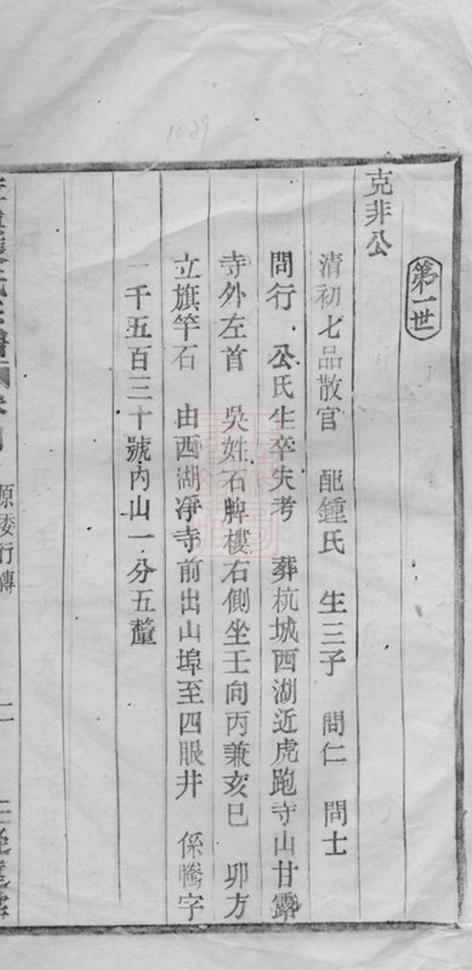 1029
第一世
克非公
清初七品散官 配鍾氏 生三子 問仁 問士
問行 公氏生卒失考 葬杭城西湖近虎跑寺山甘露
寺外左首 吳姓石牌樓右側坐壬向丙兼亥巳 卯方
立旗竿石 由西湖淨寺前出山埠至四眼井 係騰字
一千五百三十號內山一分五釐
原委行傳
二